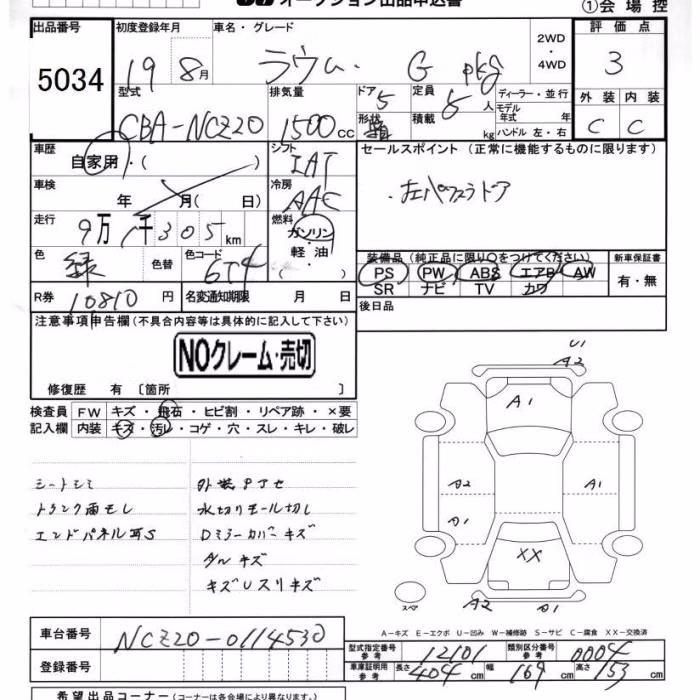 オークション出品申込書
①会場控
出品番号 初度登録年月 車名・グレード 2WD・4WD 評価点
5034 19 8月 ラウム G pkg 3
型式 排気量 ドア 5 定員 5人 ディーラー・並行 外装 内装
CBA-NCZ20 1500cc 形状 積載 kg モデル年式 年 ハンドル 左・右 C C
車歴 自家用・( ) シフト IAT セールスポイント (正常に機能するものに限ります)
車検 年 月( 日) 冷房 AAC ・左パワスラドア
走行 9万 1千305km 燃料 ガソリン・軽油・( )
色 緑 色替 色コード 6T4
装備品(純正品に限り○をつけてください) 新車保証書
PS PW ABS エアB AW 有・無
SR ナビ TV カワ
R券 10810円 名変通知期限 月 日 後日品
注意事項申告欄(不具合内容等は具体的に記入して下さい)
NOクレーム・売切
修復歴 有〔箇所 〕
検査員 FW キズ・飛石・ヒビ割・リペア跡・×要
記入欄 内装 キズ・汚レ・コゲ・穴・スレ・キレ・破レ
シートシミ 外装
トランク雨モレ 水切りモール切し
エンドパネル Dミラーカバーキズ
キズ
キズUスリキズ
U1
A2
A1
A2 A1
A1
XX
スペア A2 A1
A-キズ E-エクボ U-凹み W-補修跡 S-サビ C-腐食 XX-交換済
車台番号 NCZ20-0114530
型式指定番号 参考 12101 類別区分番号 参考 0004
登録番号
車庫証明用 参考 長さ 404cm 幅 169cm 高さ 153cm
希望出品コーナー(コーナーは各会場により異なります)